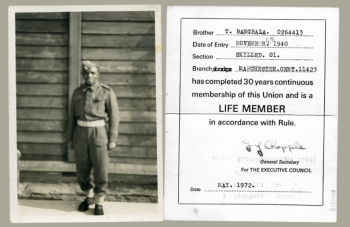 Brother T. RANGBALA. 0264413
Date of Entry NOVEMBER, 1940
Section SKILLED. 01.
Branch MANCHESTER.CENT.11423
has completed 30 years continuous
membership of this Union and is a
LIFE MEMBER
in accordance with Rule.
General Secretary
For THE EXECUTIVE COUNCIL
Date MAY. 1972.